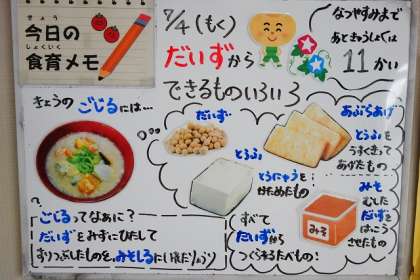 きょう
今日の
しょくいく
食育メモ
7/4(もく)
だいずから
できるものいろいろ
なつやすみまで
あときゅうしょくは
11かい
きょうのごじるには…
だいず
とうふ
とうにゅうを
かためたもの
あぶらあげ
とうふを
うすくきって
あげたもの
みそ
むした
だいずを
はっこう
させたもの
みそ
ごじるってなあに?
だいずをみずにひたして
すりつぶしたものを、みそしるにいれたりょうり
すべて
だいずから
つくられるたべもの!